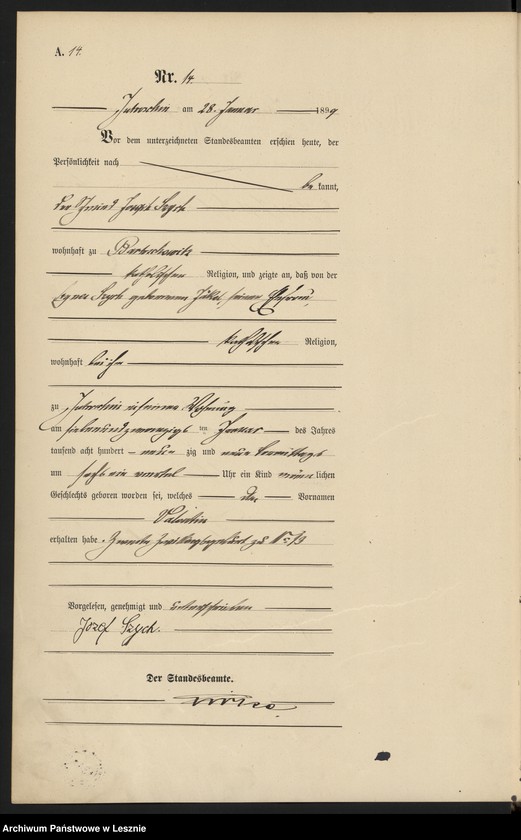 A. 14.
Nr. 14.
Jutroschin am 28. Januar 1899
Vor dem unterzeichneten Standesbeamten erschien heute, der
Persönlichkeit nach
be kannt,
der Joseph Szych
wohnhaft zu Bartoschewitz
katholischen Religion, und zeigte an, daß von der
Agnes Szych geborenen seiner Ehefrau,
katholischen Religion,
wohnhaft bei ihm
zu Jutroschin in seiner Wohnung
am siebenundzwanzigsten ten Januar des Jahres
tausend acht hundert neun zig und neun Vormittags
um sechs ein viertel Uhr ein Kind männ lichen
Geschlechts geboren worden sei, welches den Vornamen
Valentin
erhalten habe. Zweite Zwillingsgeburt zu Nr. 13
Vorgelesen, genehmigt und unterschrieben
Józef Szych.
Der Standesbeamte.
Archiwum Państwowe w Lesznie